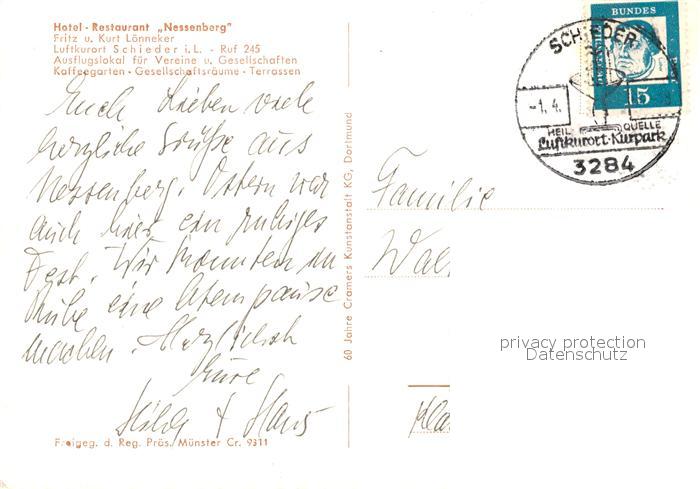 Hotel - Restaurant „Nessenberg"
Fritz u. Kurt Lönneker
Luftkurort Schieder i. L. - Ruf 245
Ausflugslokal für Vereine u. Gesellschaften
Kaffeegarten - Gesellschaftsräume - Terrassen
Euch Lieben viele
herzliche Grüße aus
Nessenberg. Ostern war
auch hier ein ruhiges
Fest. Wir konnten in
Ruhe eine Atempause
machen. Herzlichst
Eure
Hilde + Hans
Freigeg. d. Reg. Präs. Münster Cr. 9311
60 Jahre Cramers Kunstanstalt KG, Dortmund
BUNDES
15
SCHIEDER
-1.4.
HEIL QUELLE
Luftkurort-Kurpark
3284
Familie
Wal
privacy protection
Datenschutz